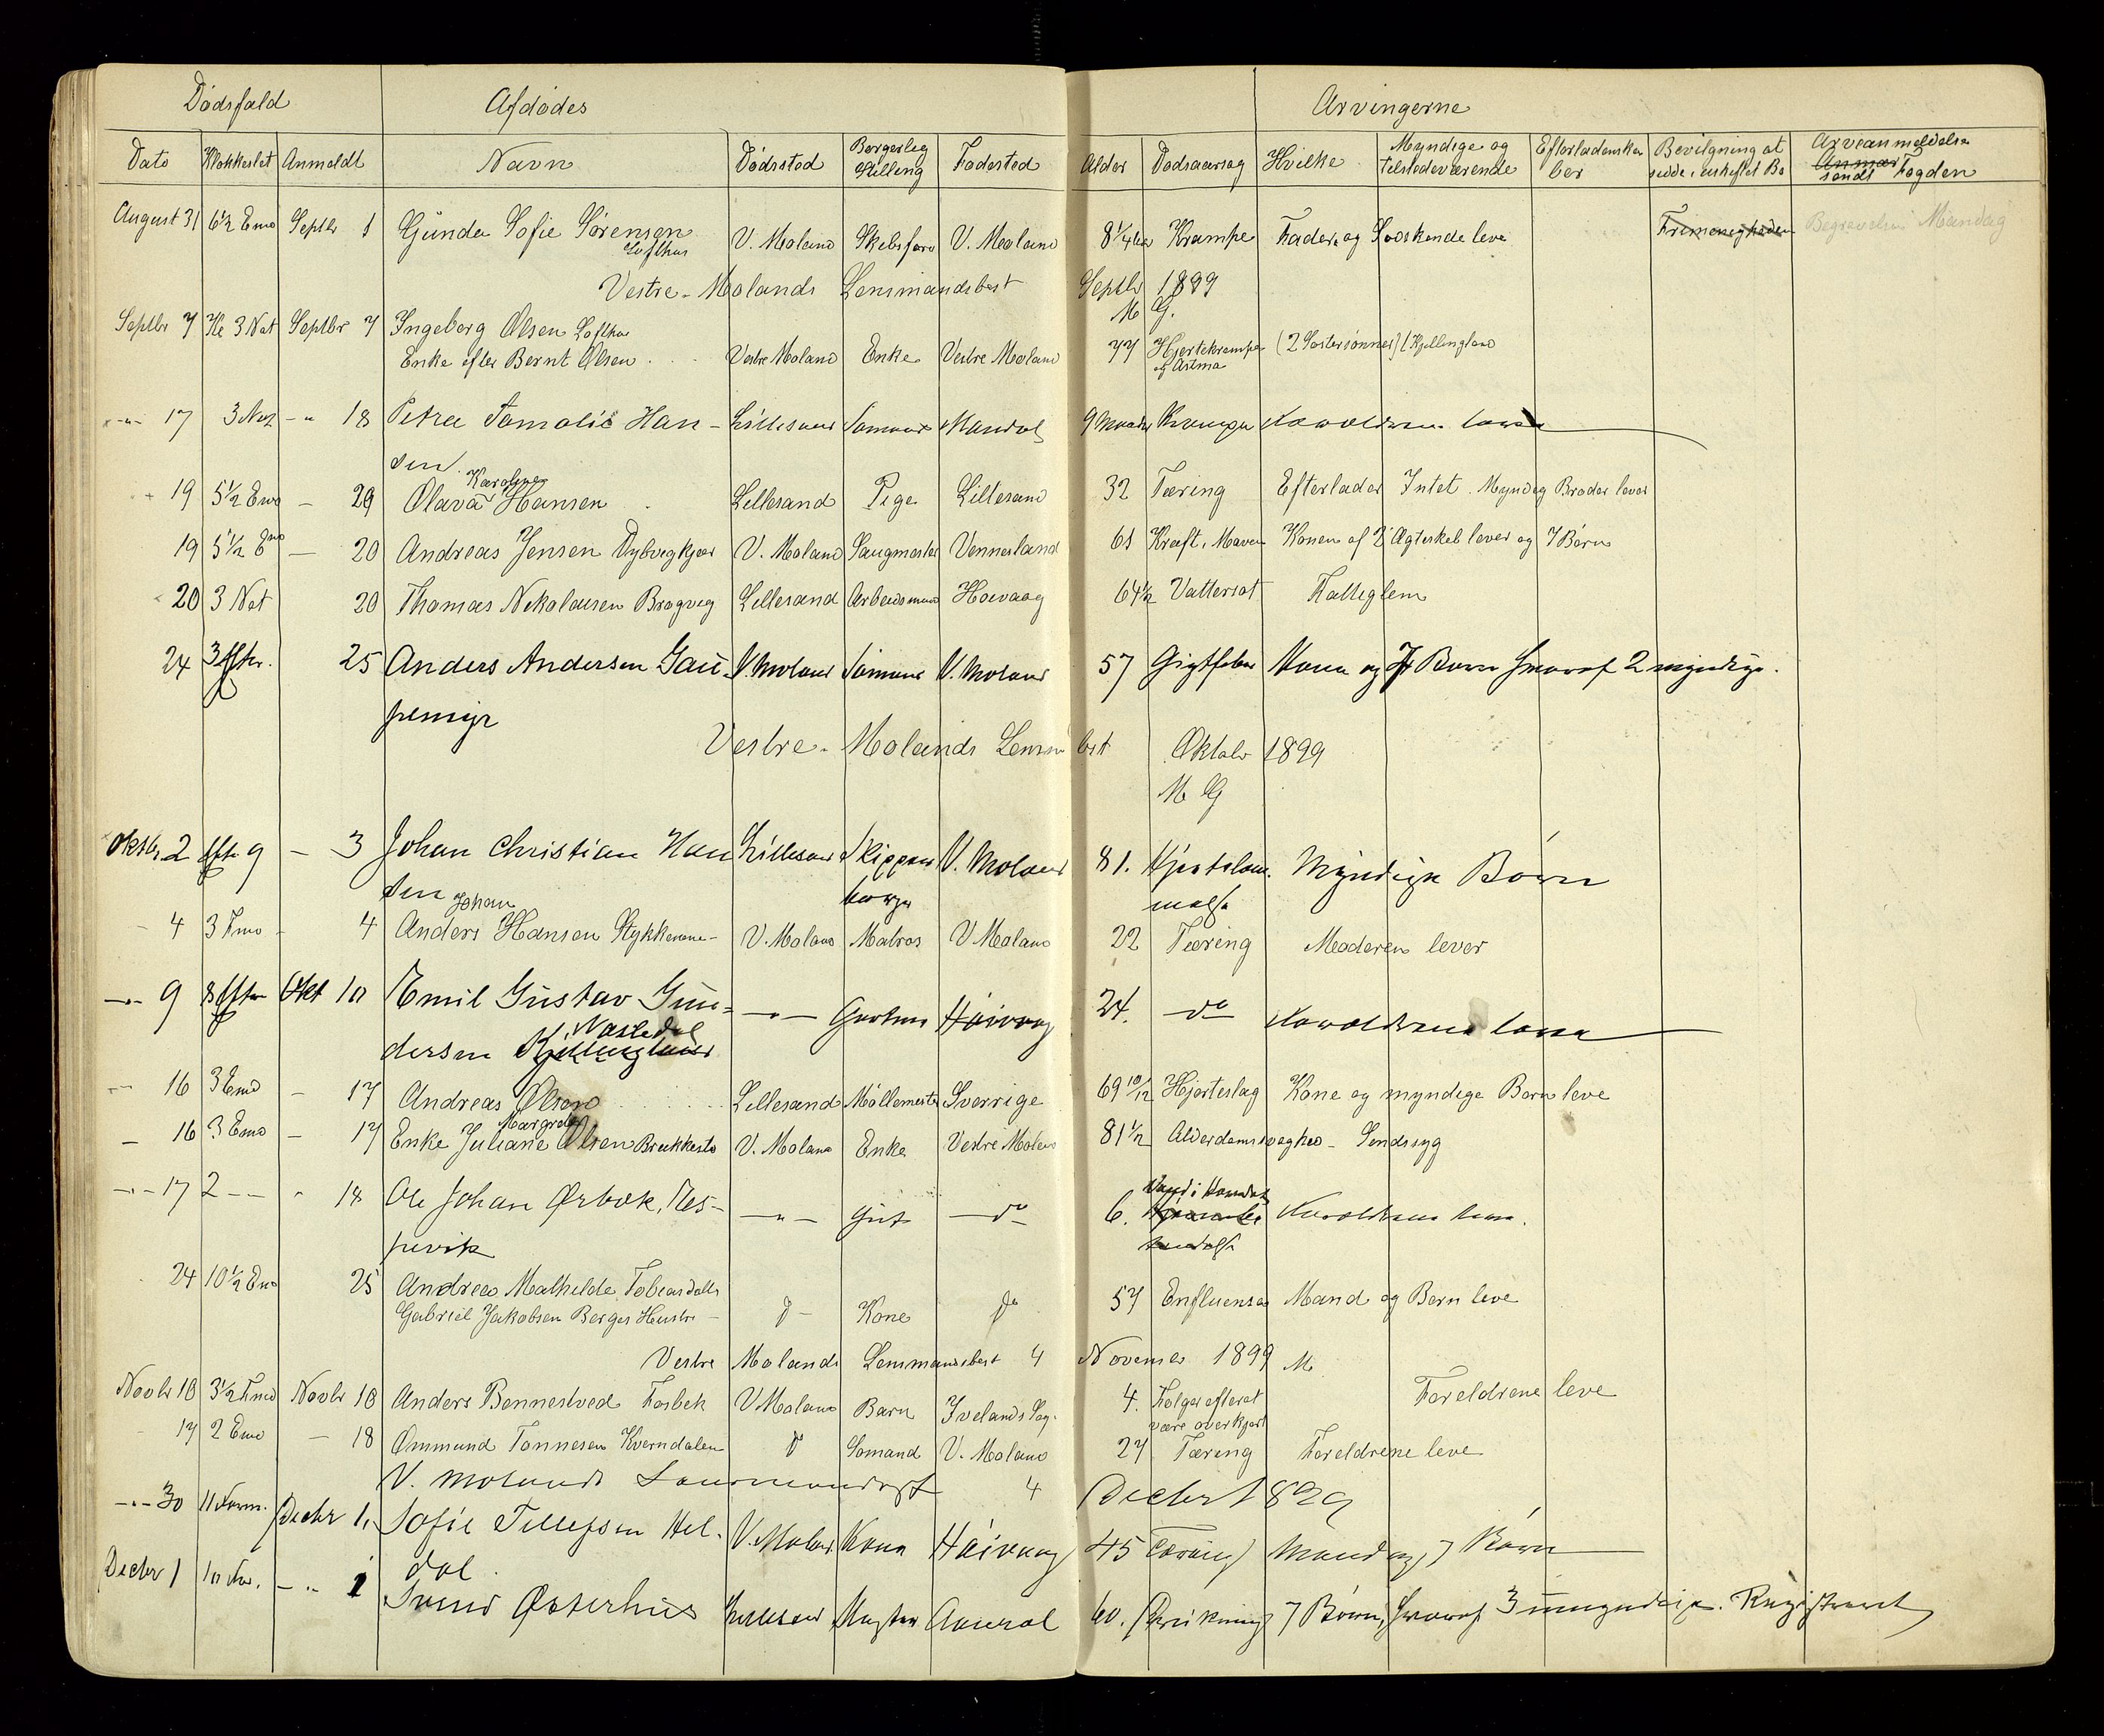 Dødsfald Afdødes Arvingerne
Dato Klokkeslet Anmeldt Navn Dødssted Borgerlig Stilling Fødested Alder Dødsaarsag Hvilke Myndige og tilstedeværende Efterladenskaber Bevilgning at sidde i uskiftet Bo Arveanmeldelse sendt Fogden
August 31 6½ Emd Septbr 1 Gunda Sofie Sørensen V. Moland V. Moland 8¼ Krampe Fader og Søskende leve Begravelse Mandag
Lofthus
Vestre-Molands Lensmandsbest Septbr 1899
M G.
Septbr 7 Kl 3 Nat Septbr 7 Ingeborg Olsen Lofthus
Enke efter Bernt Olsen Vestre Moland Enke Vestre Moland 77 Hjertekrampe og Astma (2 Søstersønner) Kjellingland
-"- 17 3 -"- 18 Petra Tomalie Han- Lillesand Mandal 9 Maader Krampe Forældrene leve
sen
19 5½ Emd - 29 Olava Karoline Hansen Lillesand Pige Lillesand 32 Tæring Efterlader Intet. Myndig Broder lever
19 5½ Emd - 20 Andreas Jensen Dybvigkjær V. Moland Saugmester Vennesland 61 Kræft i Maven Konen af 2 Ægteskab lever og 7 Børn
20 3 Nat 20 Thomas Nikolaisen Brogvig Lillesand Arbeidsmand Høivaag 64½ Vattersot Fattiglem
24 3 Eftr. 25 Anders Andersen Gau- V. Moland Sømand V. Moland 57 Gigtfeber Kone og 7 Børn hvoraf 2 myndige.
pemyr
Vestre-Molands Lensm best Oktobr 1899
M G
Oktbr. 2 Eft. 9 - 3 Johan Christian Han Lillesand Skipper V. Moland 81. Myndige Børn
sen borger
4 3 Fmd - 4 Anders Johan Hansen Stykkene- V. Moland Matros V Moland 22 Tæring Moderen lever
-"- 9 8 Eftr Okt 10 Emil Gustav Gun- -"- Høivaag 24. do Forældrene leve
dersen Vasledal
16 3 Emd - 17 Andreas Olsen Lillesand Møllemester Sverrige 69 10/12 Hjerteslag Kone og myndige Børn leve
16 3 Emd - 17 Enke Juliane Margrete Olsen Brækkestø V. Moland Enke Vestre Moland 81½ Alderdomssvaghed - Sindssyg
-"- 17 2 - - " 18 Ole Johan Ørbæk, Jes- -"- Gut do 6. Vand i Hovedet Forældrene leve.
pervik
24 10½ Emd 25 Andrea Mathilde Tobiasdatter
Gabriel Jakobsen Berges Hustru do Kone do 57 Enfluensa Mand og Børn leve
Vestre Molands Lensmandsbest 4 November 1899 M
Novbr 18 3½ Fmd Novbr 18 Anders Bennestved Fosbek V Moland Barn Ivelands Sog. 4. Følger efter at være overkjørt Forældrene leve
17 2 Emd - 18 Ommund Tønnesen Kverndalen do Sømand V. Moland 27 Tæring Forældrene leve
V. Molands Lensmandsbest 4 Decbr 1899
-"- 30 11 Form. Decbr 1. Sofie Tellefsen Hel- V. Moland Kone Høivaag 45 Tæring Mand og 7 Børn
dal
Decbr 1 10 -"- 1 Svend Østerhus Lillesand Aamdal 60. Drukning 7 Børn, hvoraf 3 umyndige. Registreret